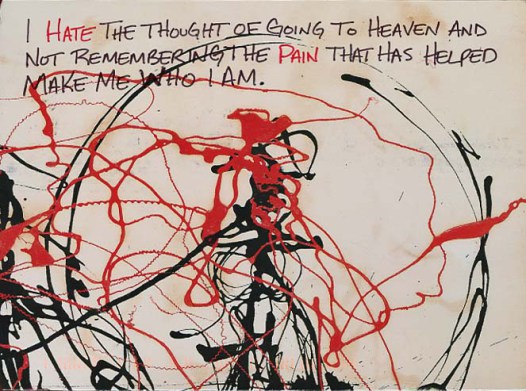 I HATE THE THOUGHT OF GOING TO HEAVEN AND
NOT REMEMBERING THE PAIN THAT HAS HELPED
MAKE ME WHO I AM.